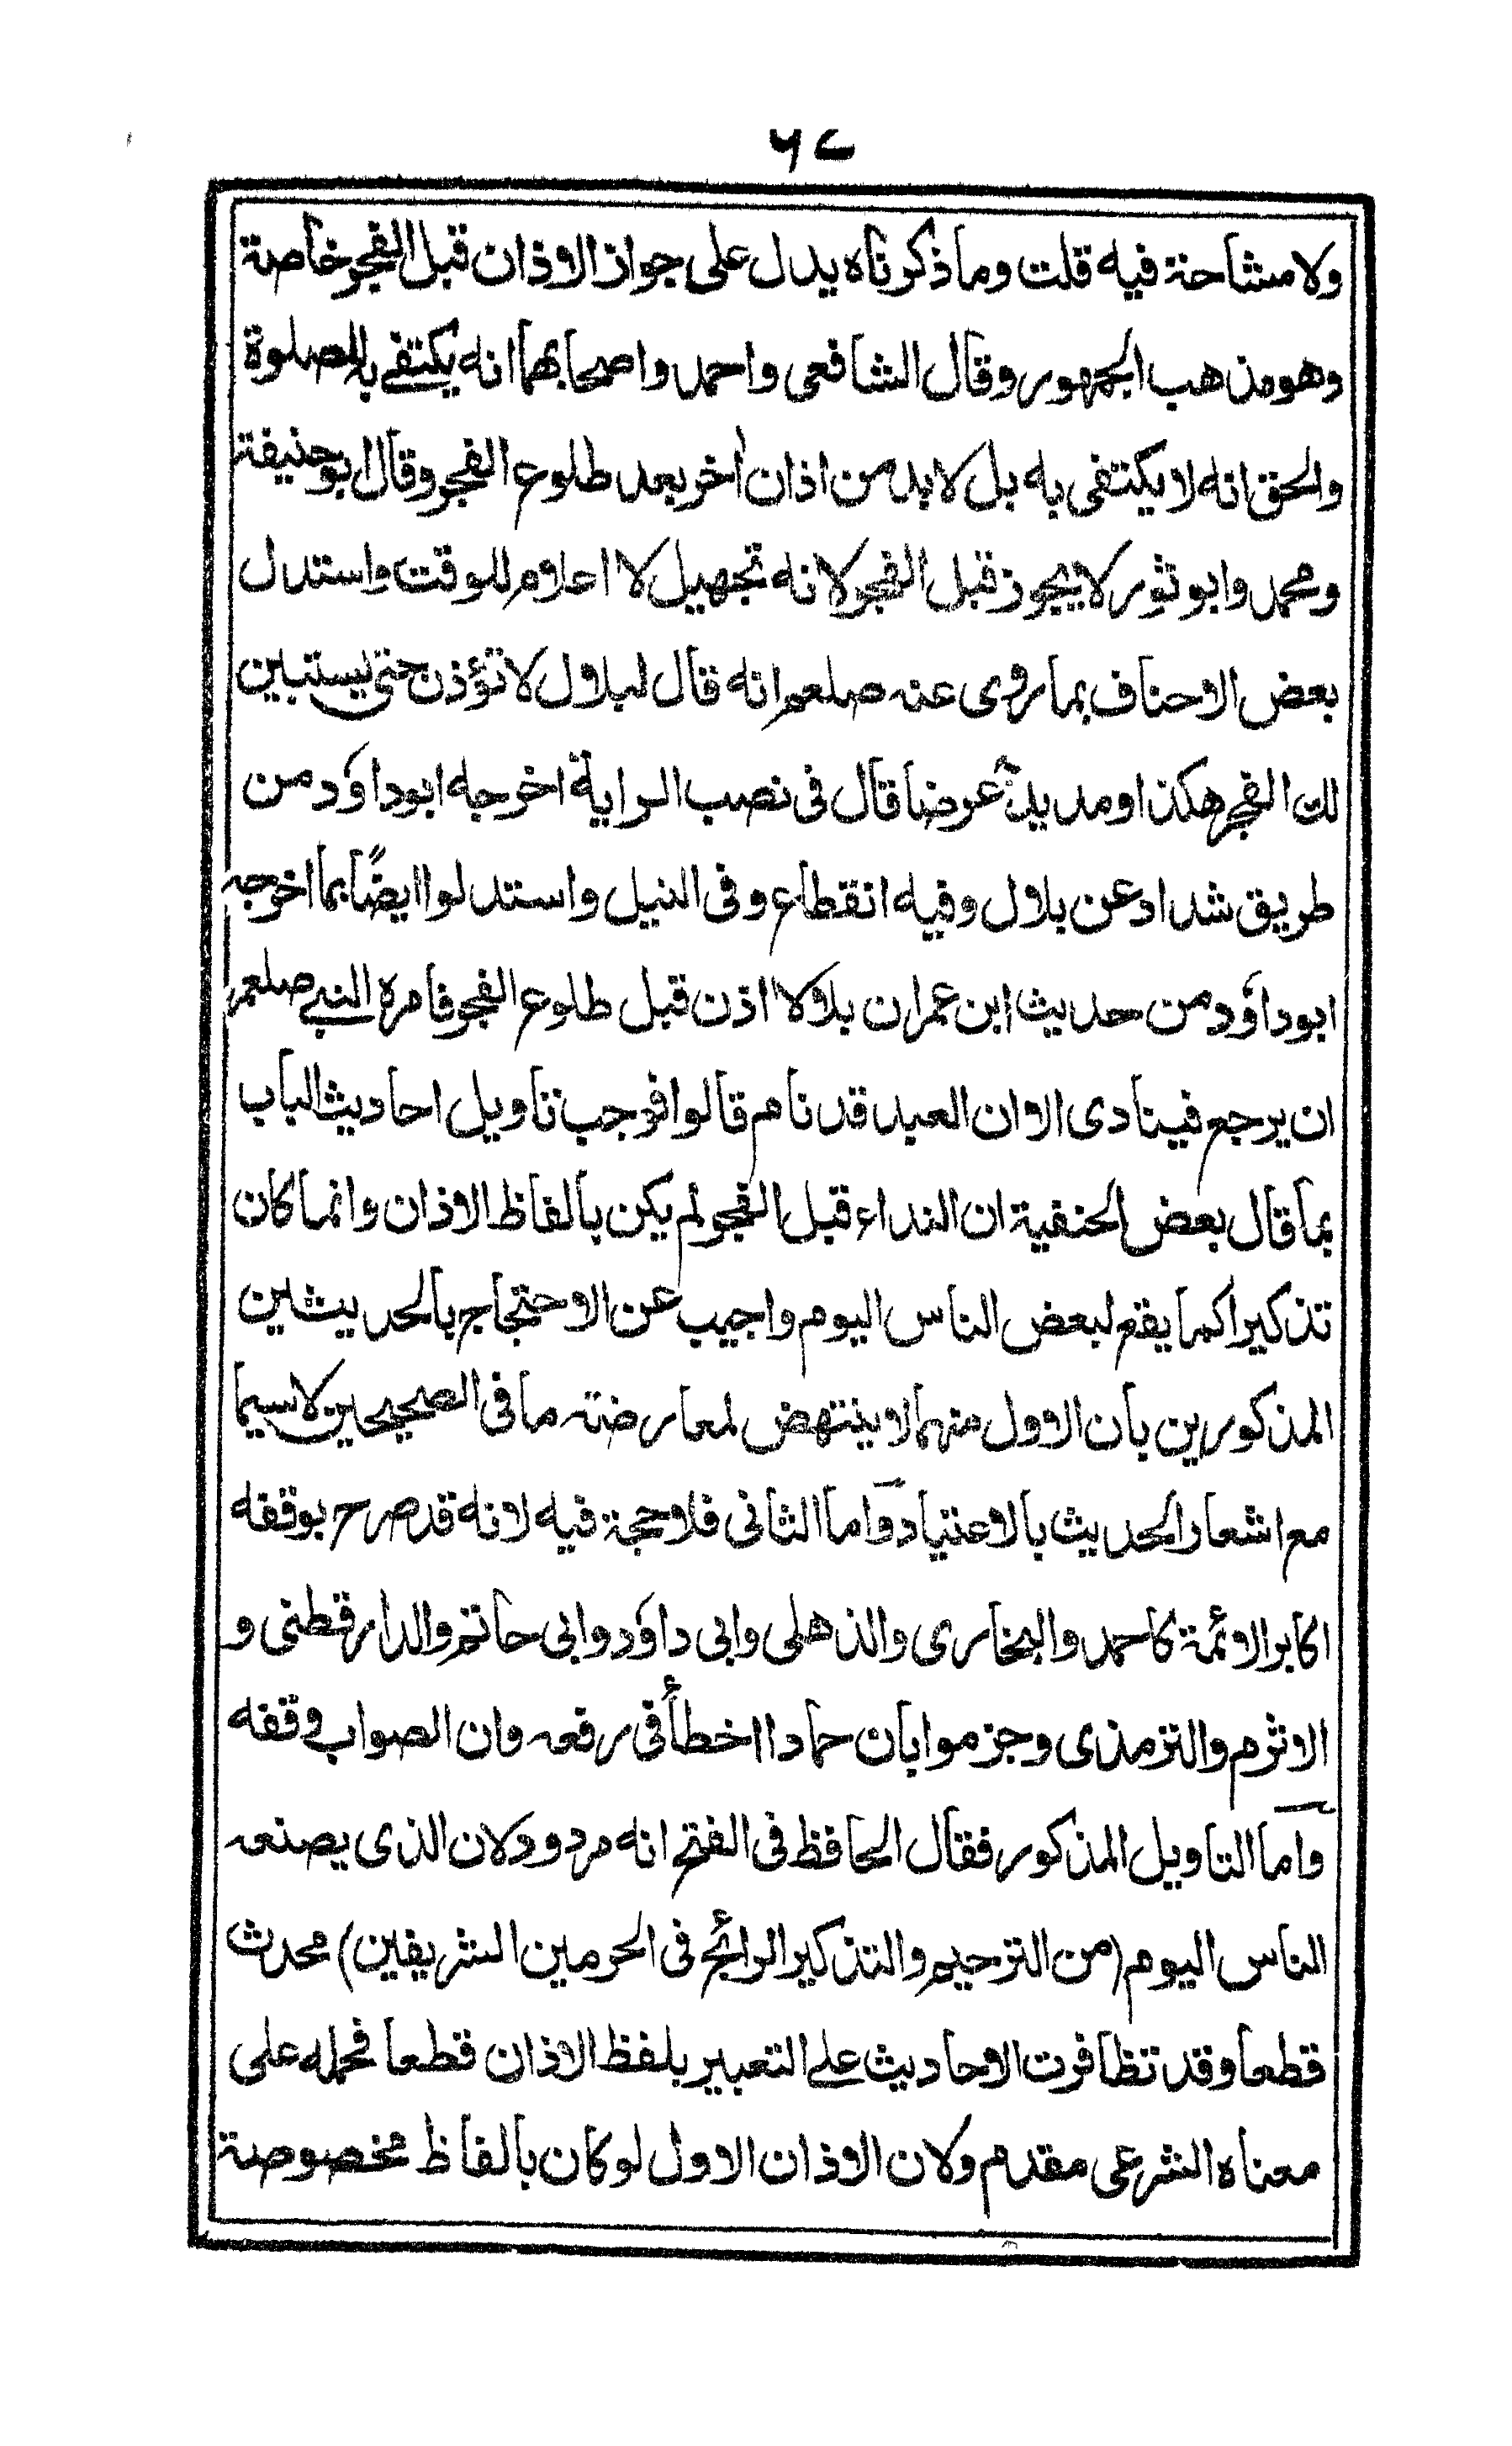 ٦٧
ولا مشاحة فيه قلت وما ذكرناه يدل على جواز الاذان قبل الفجر خاصة
وهو مذهب الجمهور وقال الشافعى واحمد واصحابهما انه يكتفى به للصلوة
والحق انه لا يكتفى به بل لا بد من اذان اٰخر بعد طلوع الفجر وقال ابو حنيفة
ومحمد وابو ثور لا يجوز قبل الفجر لانه تجهيل لا اعلام للوقت واستدل
بعض الاحناف بما روى عنه صلعم انه قال لبلال لا تؤذن حتى يستبين
لك الفجر هكذا ومد يدہ عرضا قال فى نصب الراية اخرجه ابوداؤد من
طريق شداد عن بلال وفيه انقطاع وفى النيل واستدلوا ايضًا بما اخرجه
ابوداؤد من حديث ابن عمر ان بلالا اذن قبل طلوع الفجر فامره النبى صلعم
ان يرجع فينادى الا ان العبد قد نام قالوا فوجب تاويل احاديث الباب
بما قال بعض الحنفية ان النداء قبل الفجر لم يكن بالفاظ الاذان وانما كان
تذكيرا كما يقع لبعض الناس اليوم واجيب عن الاحتجاج بالحديثين
المذكورين بان الاول منهما لا ينتهض لمعارضته ما فى الصحيحين لا سيما
مع اشعار الحديث بالاعتياد واما الثانى فلا حجة فيه لانه قد صرح بوقفه
اكابر الائمة كاحمد والبخارى والذهلى وابى داؤد وابى حاتم والدارقطنى و
الاثرم والترمذى وجزموا بان حمادا اخطأ فى رفعه وان الصواب وقفه
واما التاويل المذكور فقال الحافظ فى الفتح انه مردود لان الذى يصنعه
الناس اليوم (من الترحيم والتذكير الرائج فى الحرمين الشريفين) محدث
قطعا وقد تظافرت الاحاديث على التعبير بلفظ الاذان قطعا فحمله على
معناه الشرعى مقدم ولان الاذان الاول لو كان بالفاظ مخصوصة